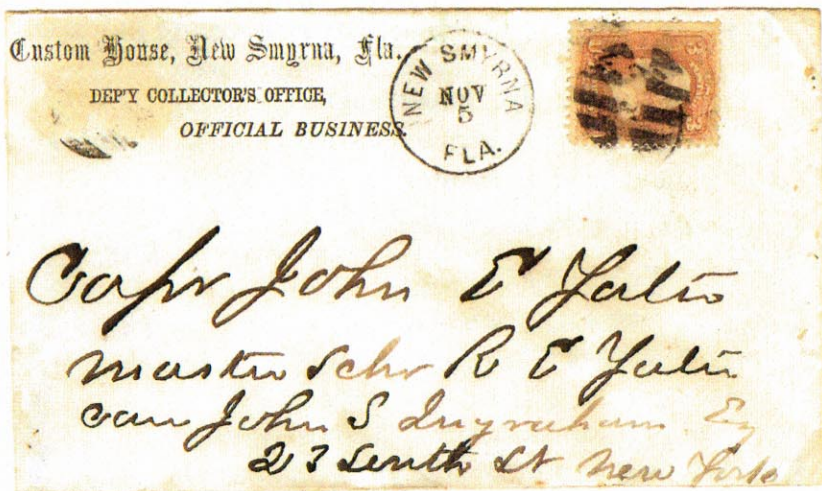 Custom House, New Smyrna, Fla.
DEP'Y COLLECTOR'S OFFICE,
OFFICIAL BUSINESS.
NEW SMYRNA
NOV
5
FLA.
Capt John E Yates
Master Schr R E Yates
care John S Ingraham Esq
23 South St New York